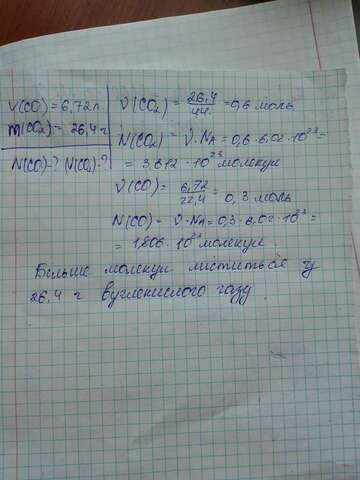 V(CO) = 6,72 л
m(CO₂) = 26,4 г
N(CO)-? N(CO₂)-?
ν(CO₂) = 26,4/44 = 0,6 моль
N(CO₂) = ν·Nₐ = 0,6·6,02·10²³ =
= 3,612·10²³ молекул
ν(CO) = 6,72/22,4 = 0,3 моль
N(CO) = ν·Nₐ = 0,3·6,02·10²³ =
= 1,806·10²³ молекул
Більше молекул міститься у
26,4 г вуглекислого газу